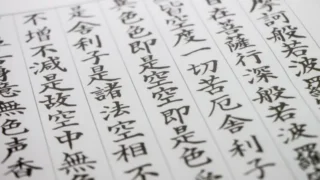 摩訶般若波羅
自在菩薩行深般若波羅
皆空度一切苦厄舍利子
異色色即是空空即是色
是舍利子是諸法空相不
不増不減是故空中無色
身意無色声香